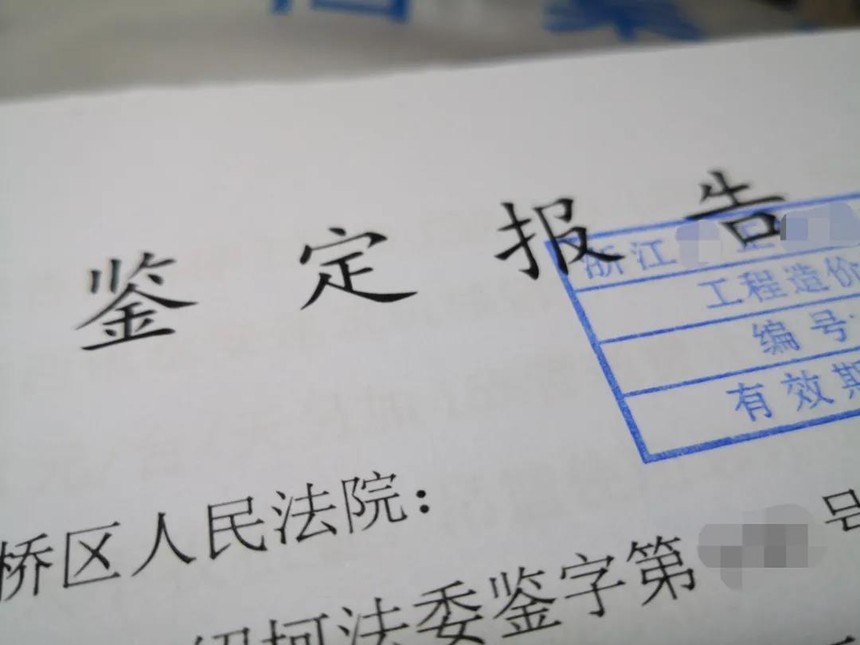 鉴定报告
浙江 正
工程造价
编号
有效期
桥区人民法院:
绍柯法委鉴字第 号